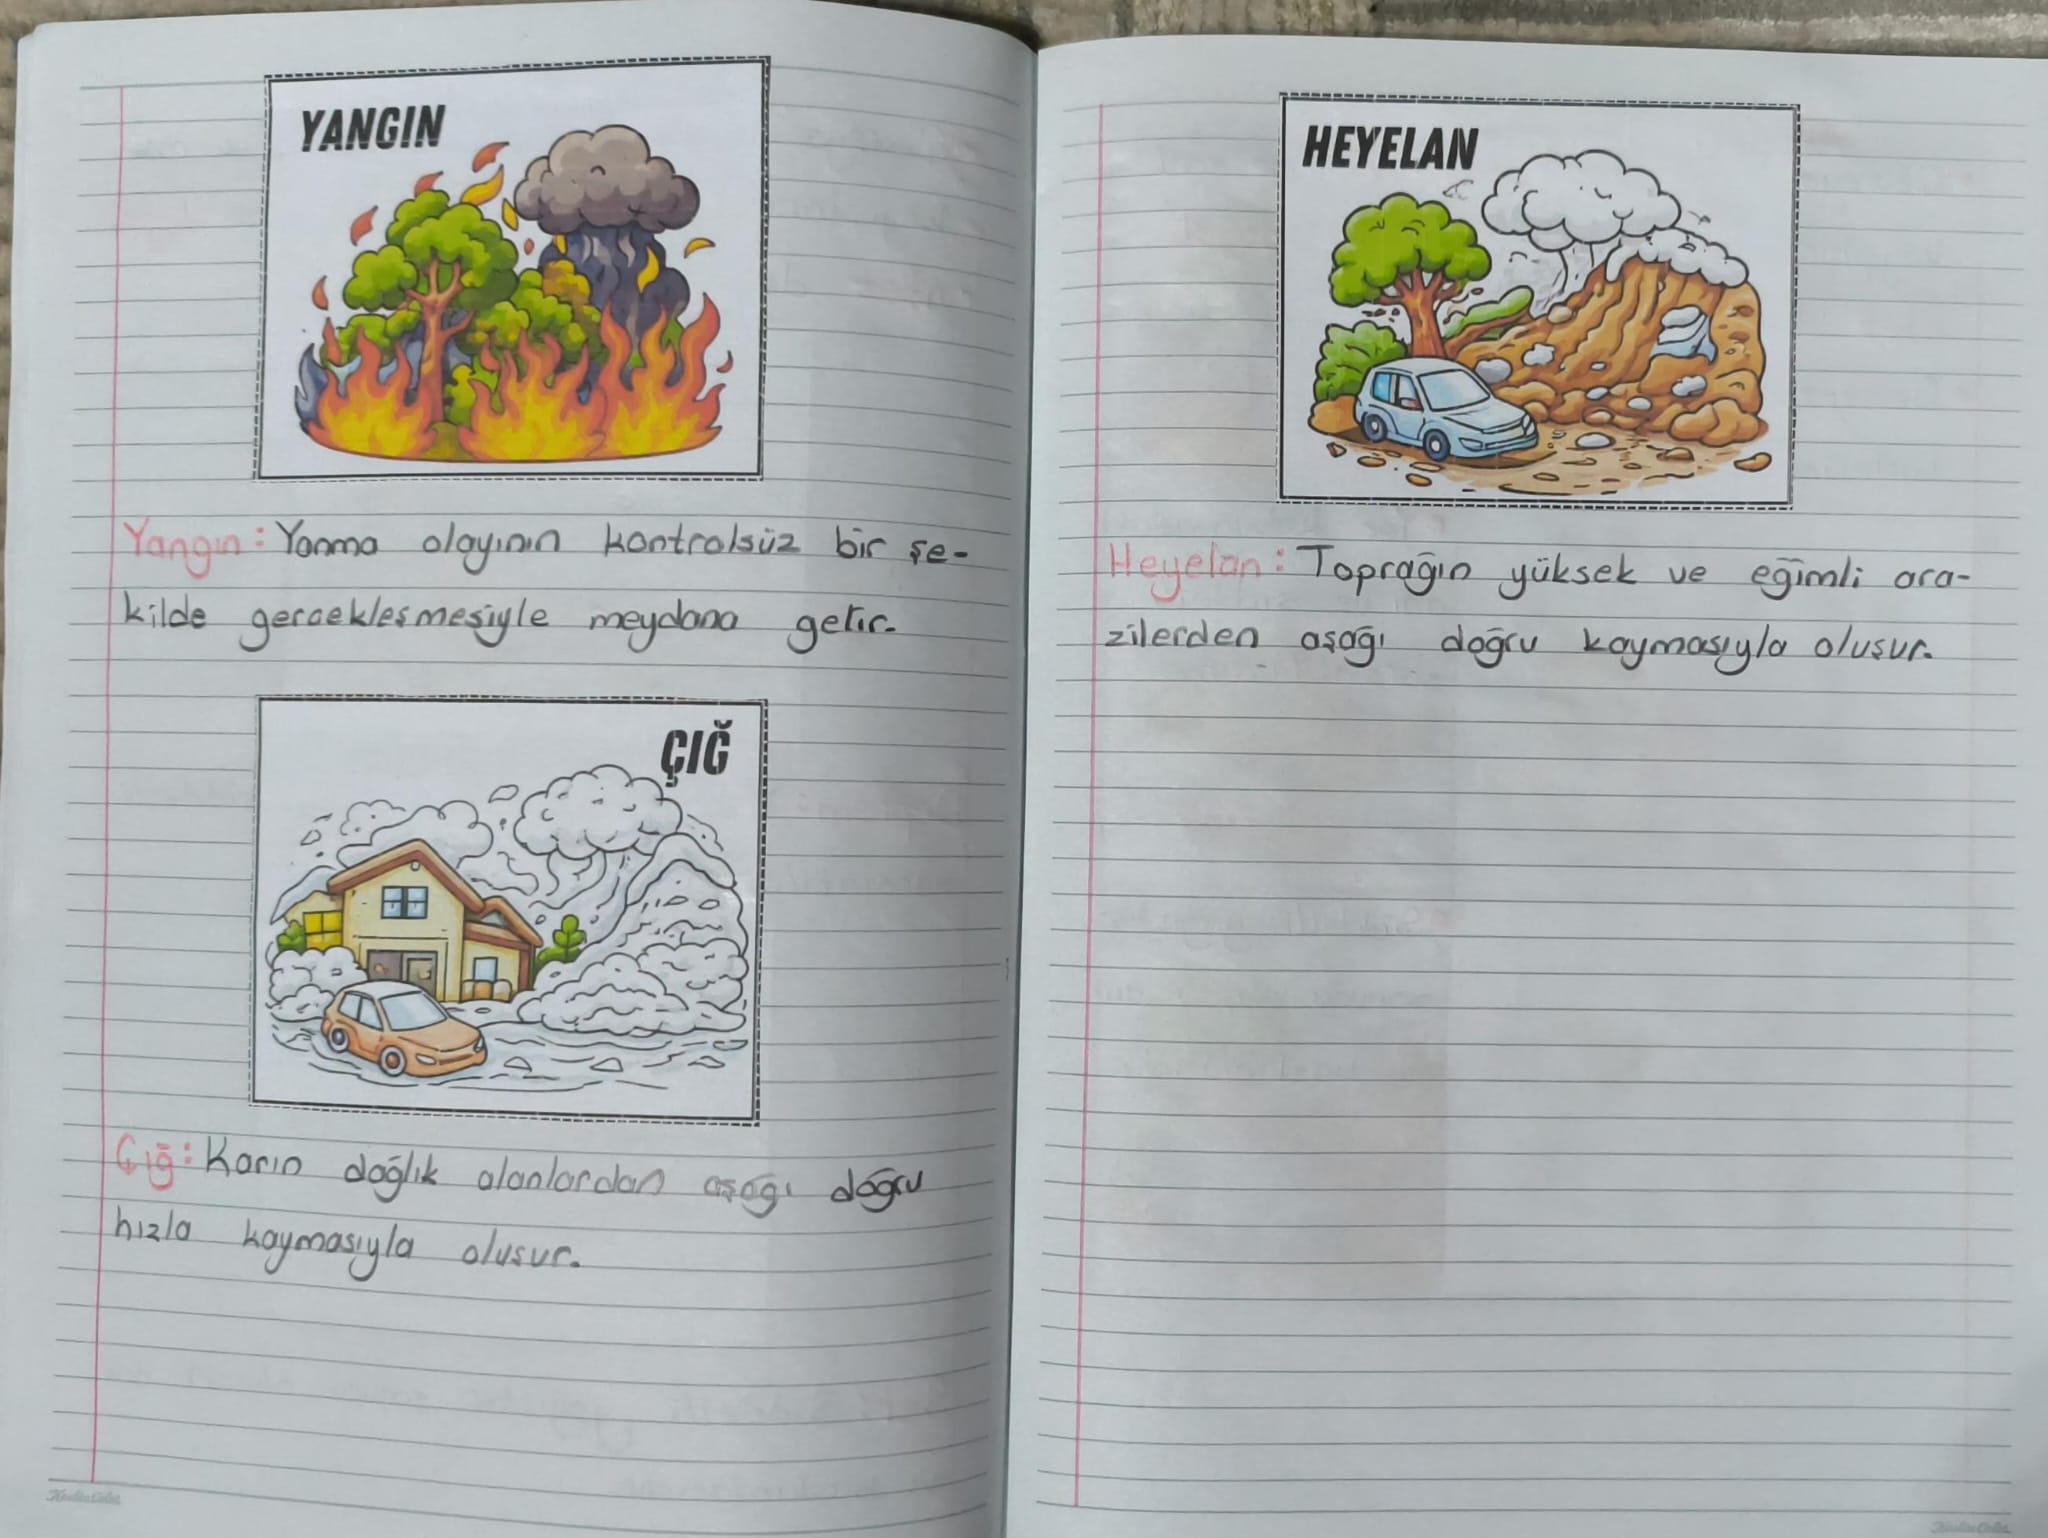 YANGIN
Yangın: Yanma olayının kontrolsüz bir şe-
kilde gerçekleşmesiyle meydana gelir.
ÇIĞ
Çığ: Karın dağlık alanlardan aşağı doğru
hızla kaymasıyla oluşur.
HEYELAN
Heyelan: Toprağın yüksek ve eğimli ara-
zilerden aşağı doğru kaymasıyla oluşur.